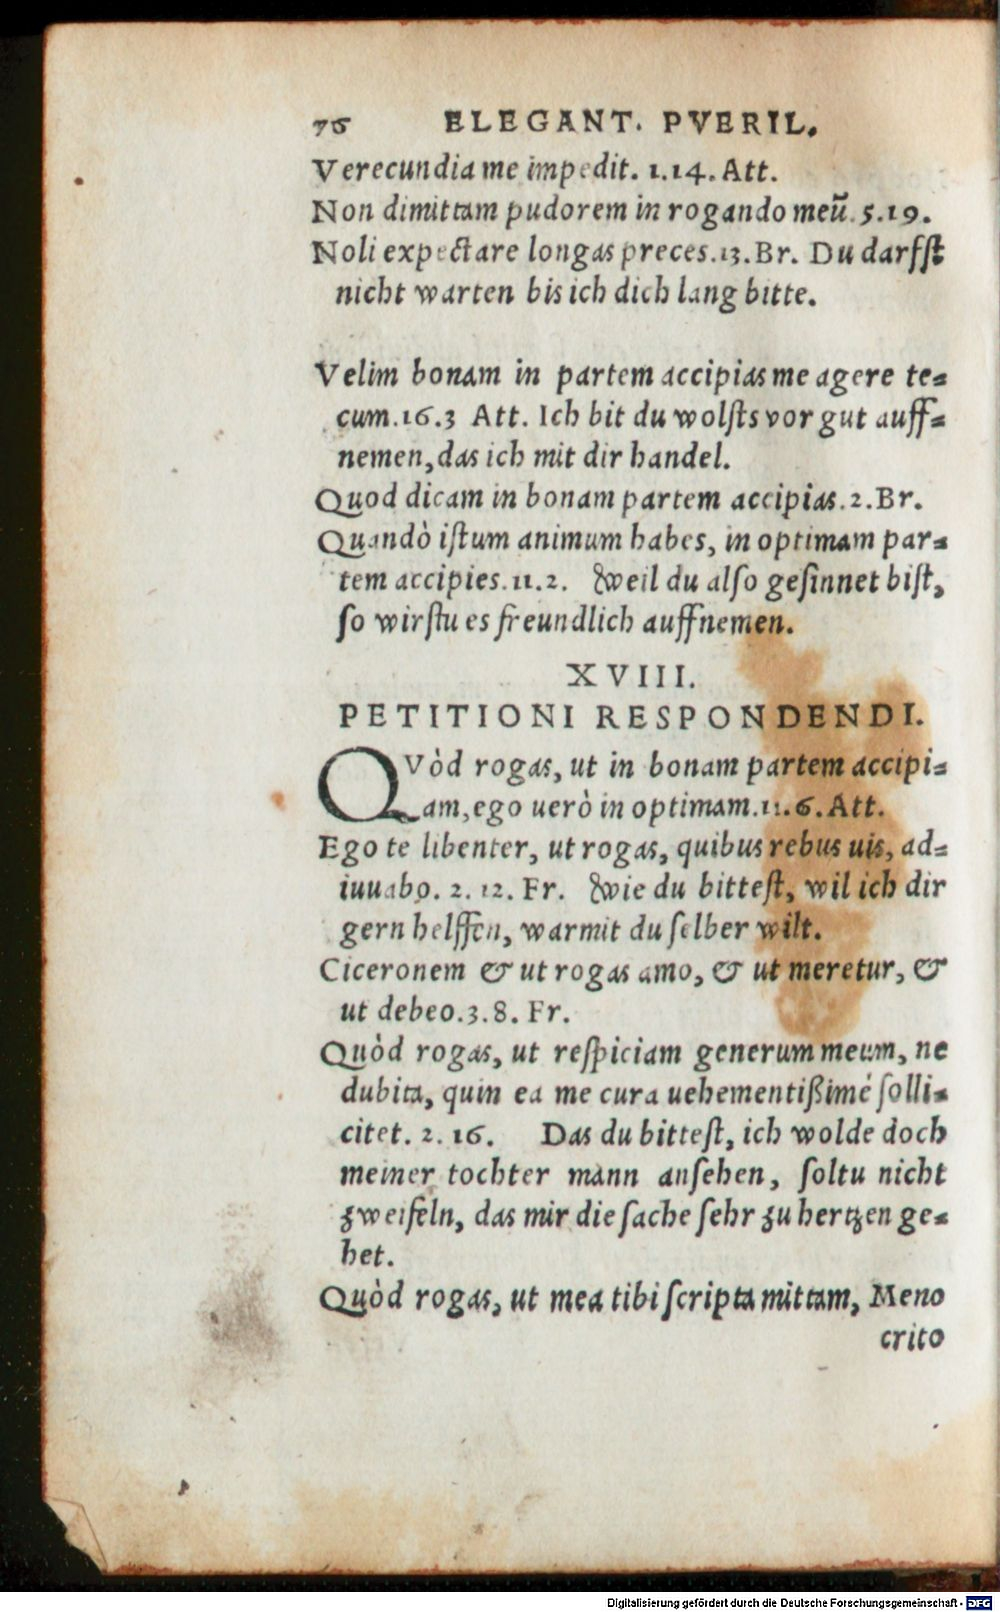 76 ELEGANT. PVERIL.
Verecundia me impedit. 1.14. Att.
Non dimittam pudorem in rogando meū. 5.19.
Noli expectare longas preces. 13. Br. Du darfſt
nicht warten bis ich dich lang bitte.
Velim bonam in partem accipias me agere te=
cum. 16.3 Att. Ich bit du wolſts vor gut auff=
nemen, das ich mit dir handel.
Quod dicam in bonam partem accipias. 2. Br.
Quandò iſtum animum habes, in optimam par=
tem accipies. 11.2. Weil du alſo geſinnet biſt,
ſo wirſtu es freundlich auffnemen.
XVIII.
PETITIONI RESPONDENDI.
QVòd rogas, ut in bonam partem accipi=
am, ego uerò in optimam. 11.6. Att.
Ego te libenter, ut rogas, quibus rebus uis, ad=
iuuabo. 2. 12. Fr. Wie du bitteſt, wil ich dir
gern helffen, warmit du ſelber wilt.
Ciceronem & ut rogas amo, & ut meretur, &
ut debeo. 3.8. Fr.
Quòd rogas, ut reſpiciam generum meum, ne
dubita, quin ea me cura uehementißimè ſolli=
citet. 2. 16. Das du bitteſt, ich wolde doch
meiner tochter mann anſehen, ſoltu nicht
zweifeln, das mir die ſache ſehr zu hertzen ge=
het.
Quòd rogas, ut mea tibi ſcripta mittam, Meno
crito
Digitalisierung gefördert durch die Deutsche Forschungsgemeinschaft - DFG